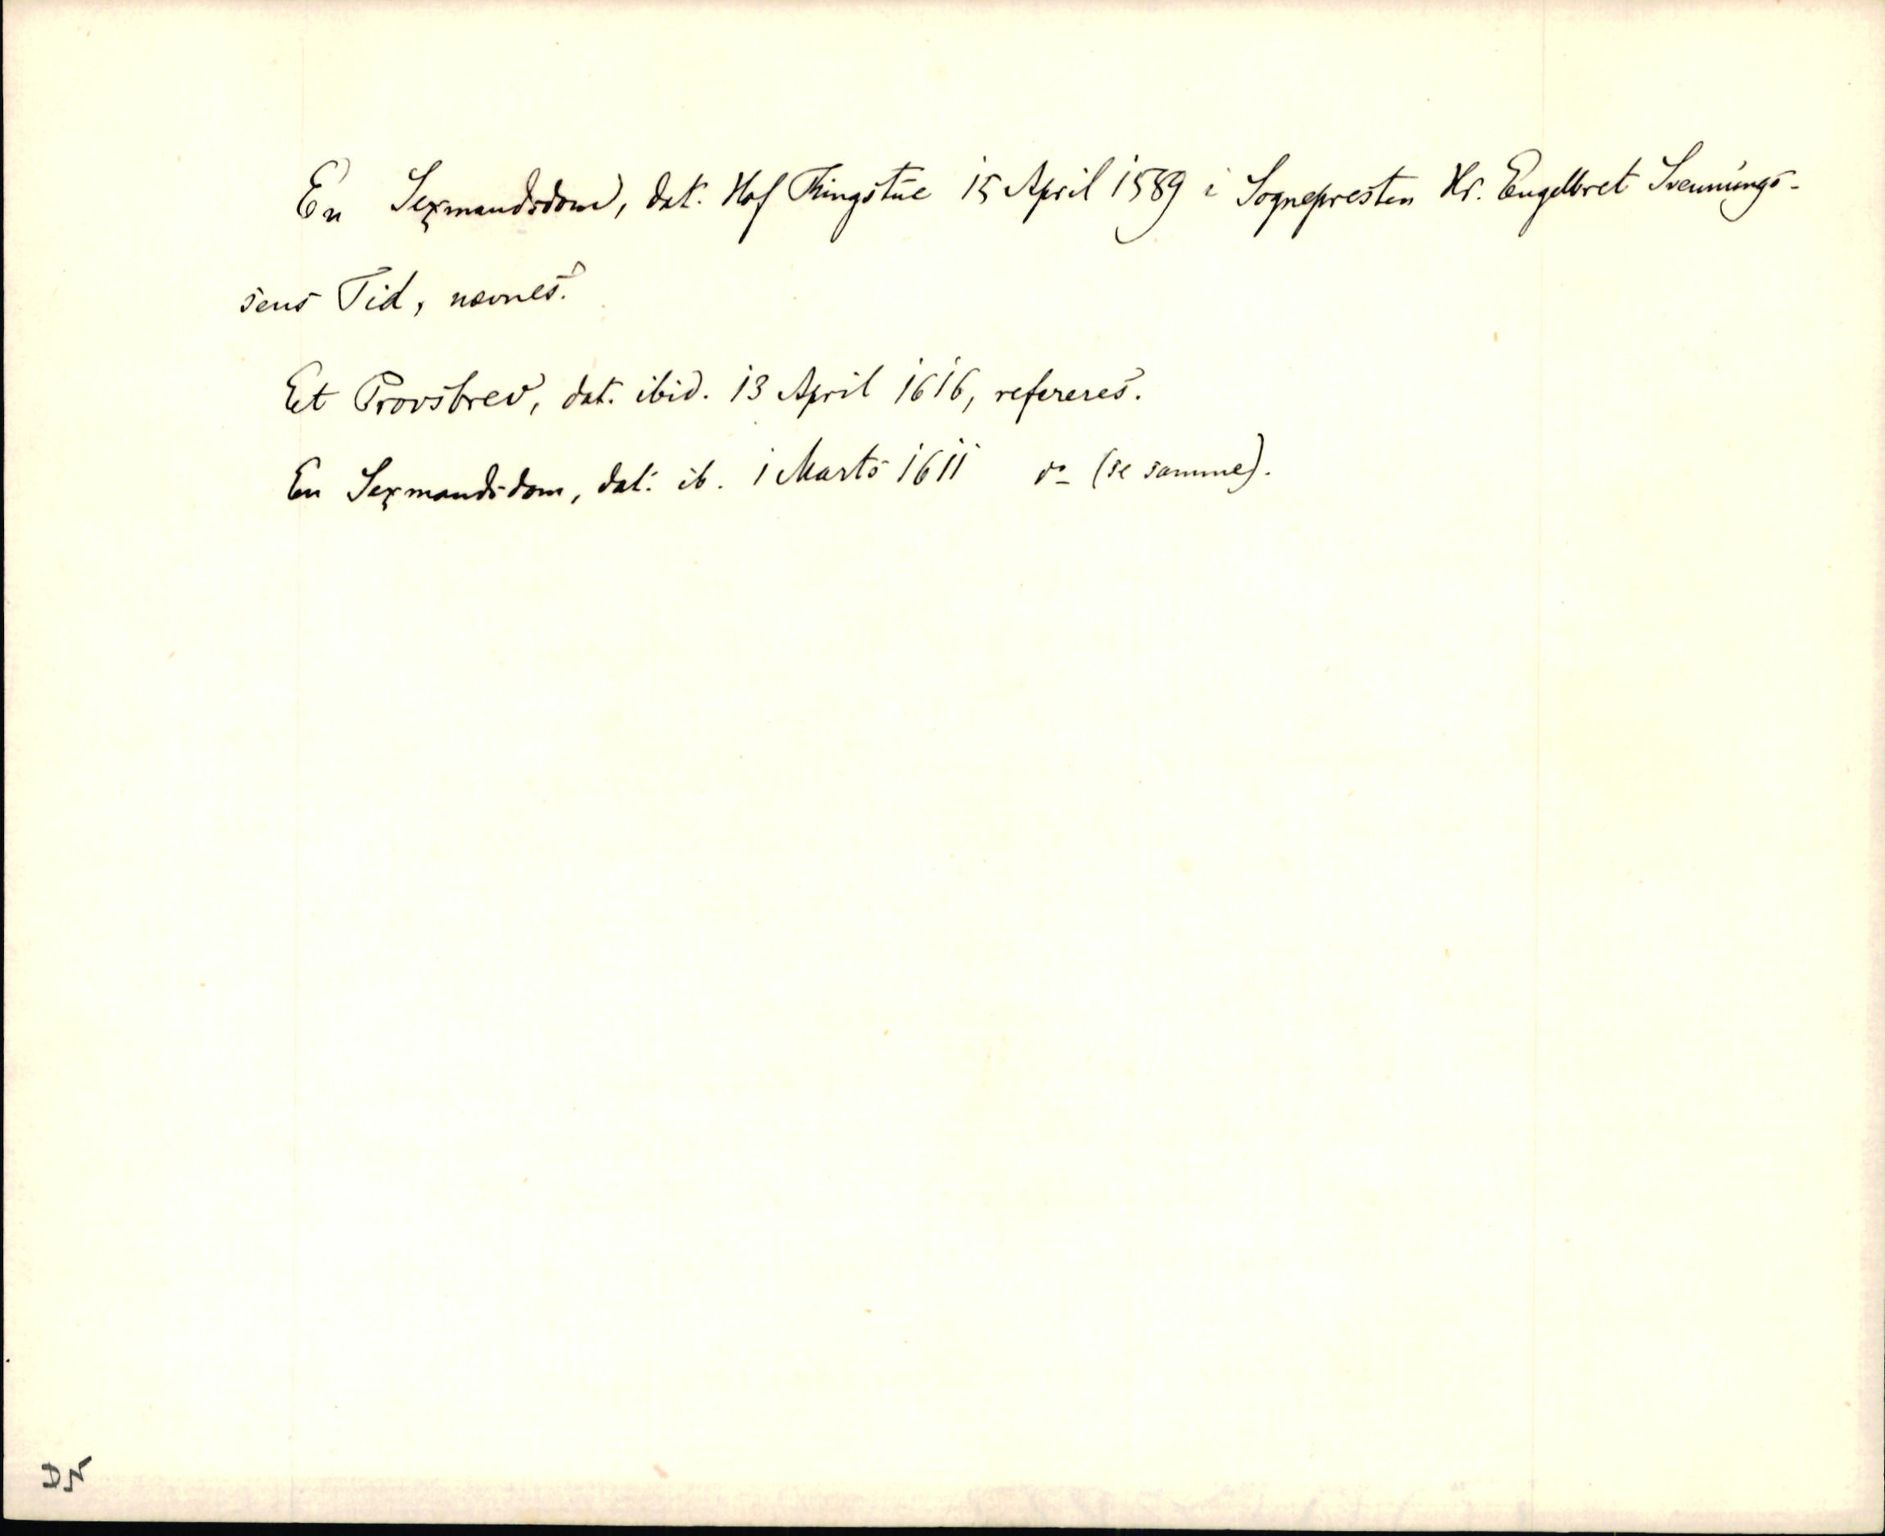 En Sexmandsdom, dat. Hof Thingstue 15 April 1589 i Sognepresten Hr. Engelbret Svennungs-
sens Tid, nævnes.
Et Provsbrev, dat. ibid. 13 April 1616, refereres.
En Sexmandsdom, dat. ib. 1 Marts 1611 do (se samme).
DN